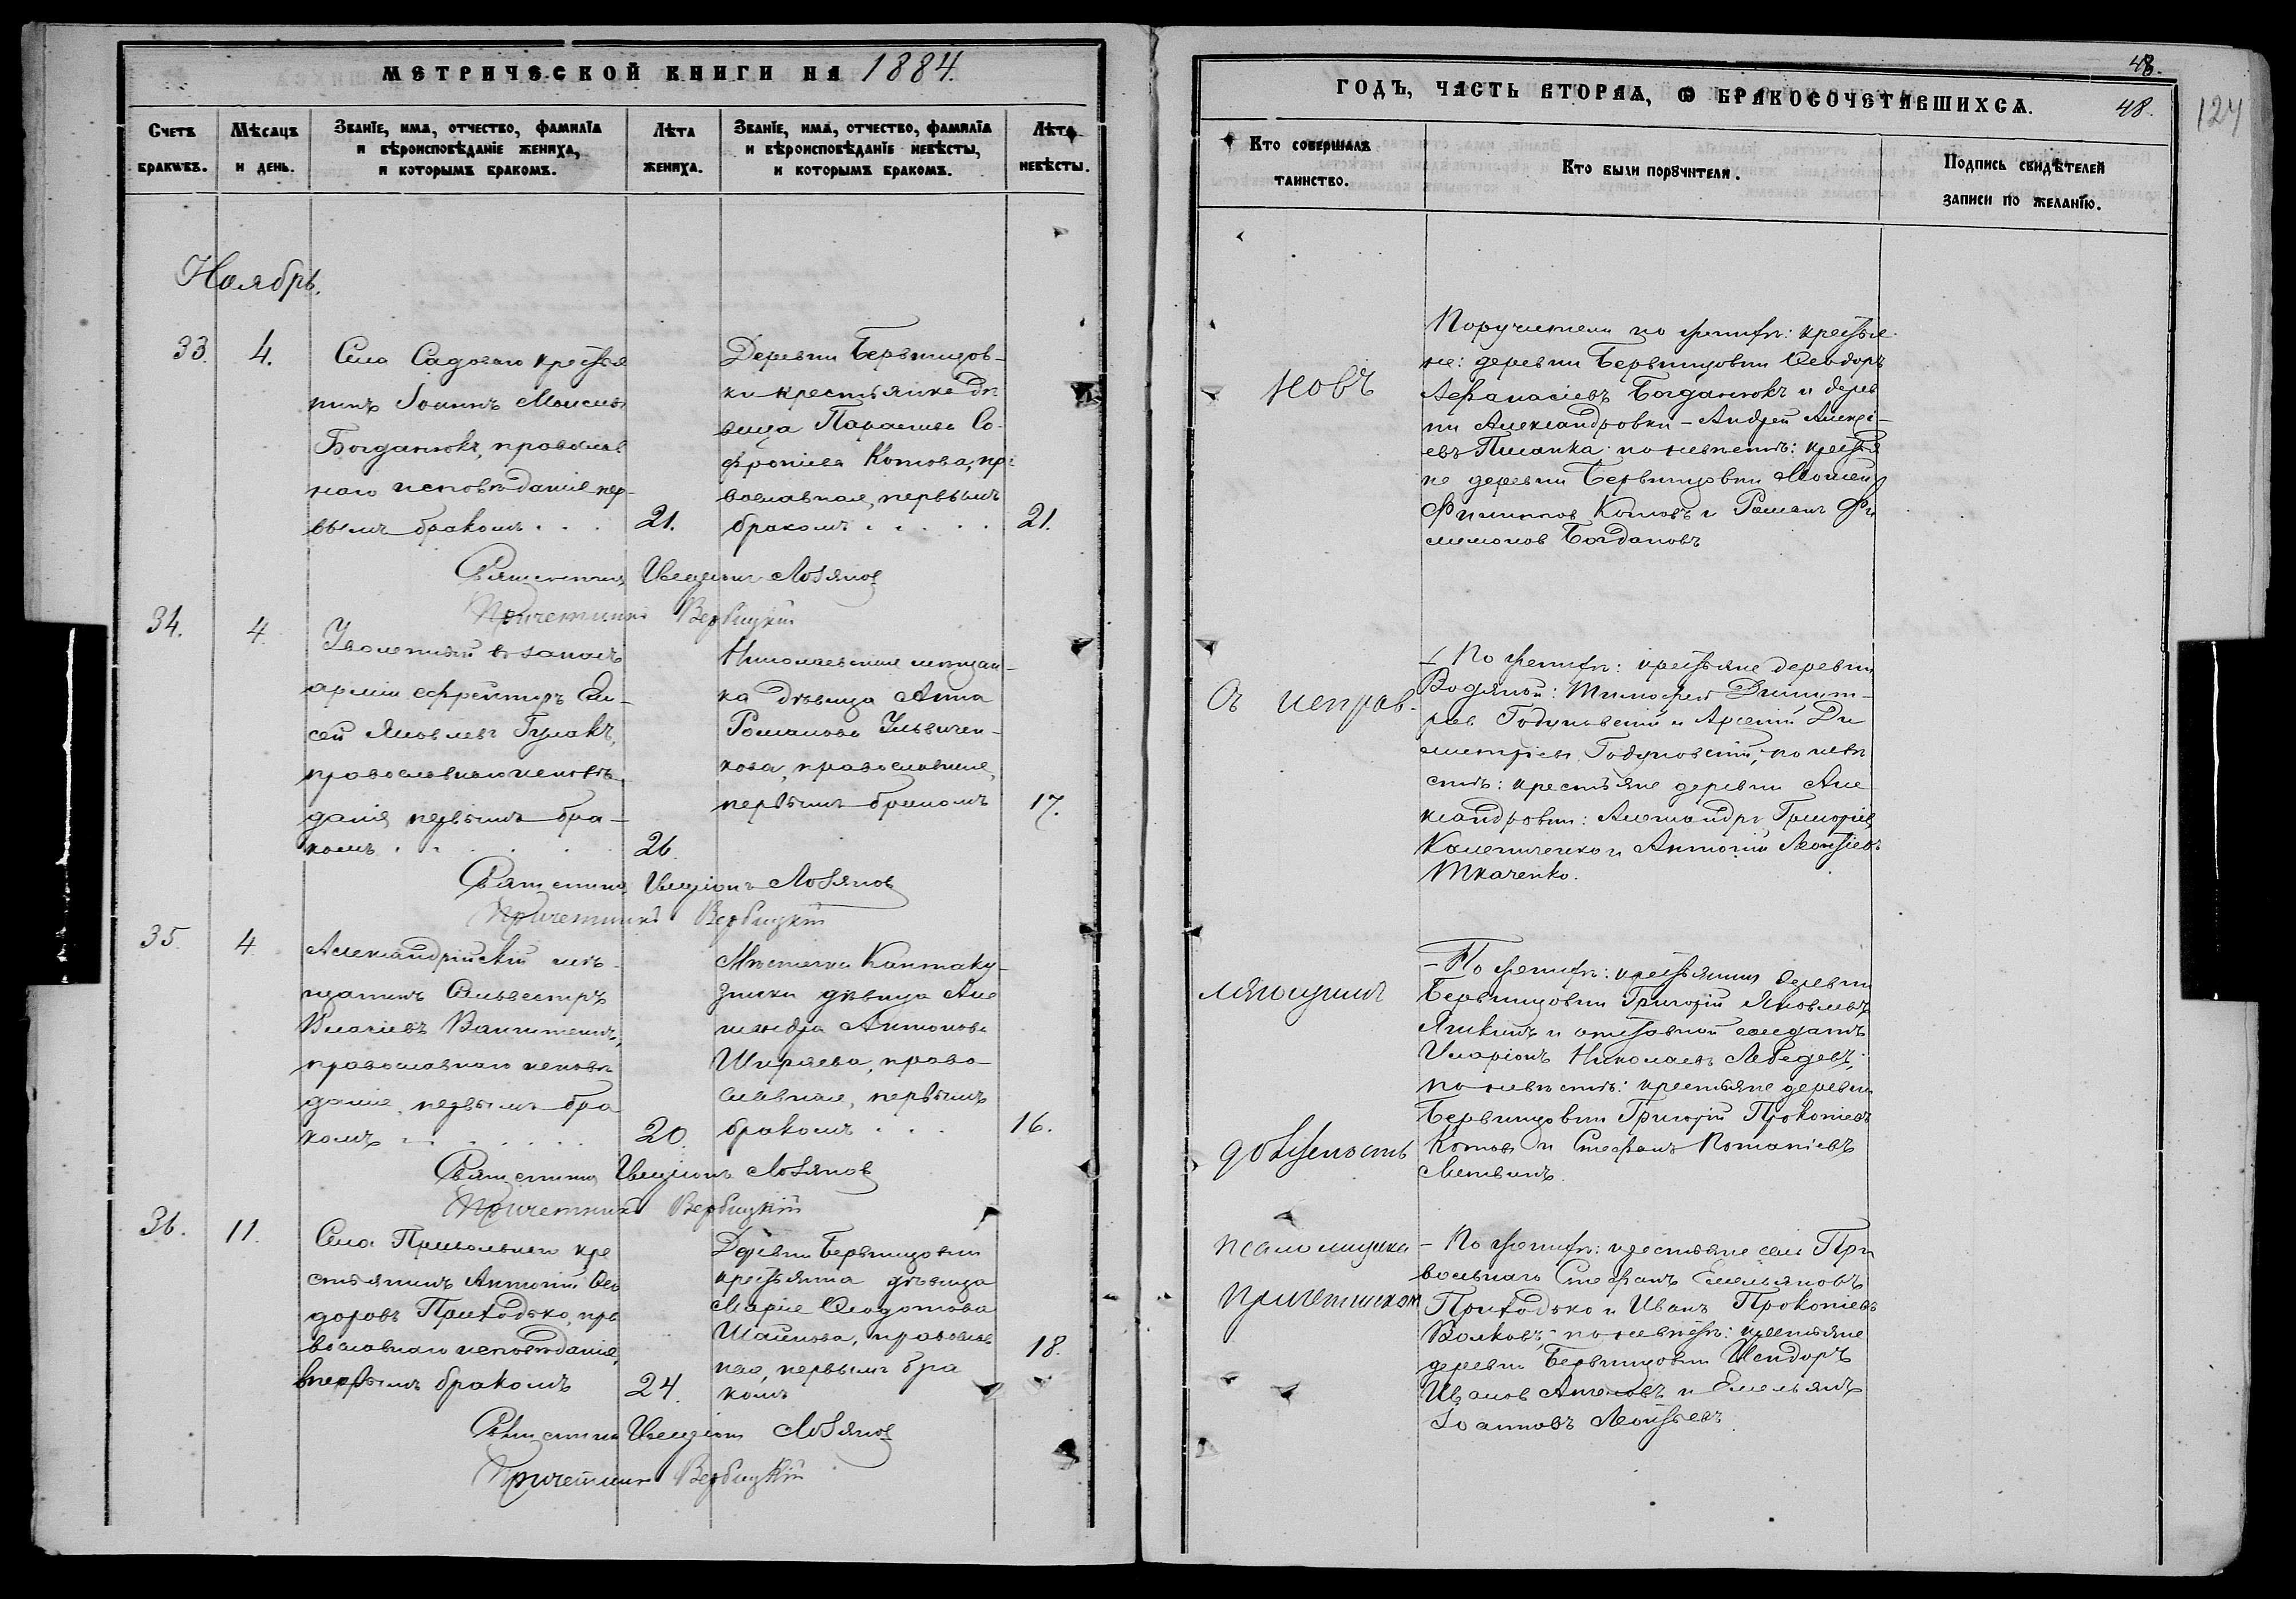 МЕТРИЧЕСКОЙ КНИГИ НА 1884.
Счетъ браковъ.
Мѣсяцъ и день.
Званїе, имя, отчество, фамилїя и вѣроисповѣданїе жениха, и которымъ бракомъ.
Лѣта жениха.
Званїе, имя, отчество, фамилїя и вѣроисповѣданїе невѣсты, и которымъ бракомъ.
Лѣта невѣсты.
Ноябрь.
33.
4.
Села Садоваго крестья
нинъ Іоаннъ Моисеевъ
Богданюкъ, православ
наго исповѣданія пер-
вымъ бракомъ . . .
21.
Деревни Бервицов-
ки крестьянка дѣ
вица Параскева Со-
фроніева Котова, пра
вославная, первымъ
бракомъ . . . . .
21.
Священникъ Лобачов
Причетникъ Вербицкій
34.
4.
Уволенный въ запасъ
арміи ефрейторъ Ели-
сей Яковлевъ Гулакъ,
православнаго исповѣ
данія первымъ бра-
комъ . . . . .
26.
Николаевская мѣщан-
ка дѣвица Анна
Романова
православная,
первымъ бракомъ
17.
Священникъ
Причетникъ Вербицкій
35.
4.
Александрійскій мѣ-
щанинъ Сильвестръ
православнаго исповѣ
данія, первымъ бра
комъ . . . . . .
20.
Мѣстечка Кантаку-
зинки дѣвица Але
ксандра Антонова
Ширяева, право-
славная, первымъ
бракомъ . . .
16.
Священникъ
Причетникъ Вербицкій
36.
11.
Села Привольнаго кре
стьянинъ Антоній Ѳео
доровъ Приходько, пра
вославнаго исповѣданія,
первымъ бракомъ
24.
Деревни Бервицовки
крестьянка дѣвица
Марія Ѳеодотова
православ
ная, первымъ бра
комъ
18.
Священникъ
Причетникъ Вербицкій
48.
ГОДЪ, ЧАСТЬ ВТОРАЯ, Ѡ БРАКОСОЧЕТАВШИХСЯ.
48.
124
Кто совершалъ таинство.
Кто были порꙋчители.
Подпись свидѣтелей записи по желанїю.
новъ
Поручители по женихѣ: крестья
не: деревни Бервицовки Ѳеодоръ
Аѳанасіевъ Богданюкъ и дерев
ни Александровки - Андрей Алексѣ-
евъ по невѣстѣ: крестья
не деревни Бервицовки
Филиппов Котовъ и Романъ Фи
лимонов Богдановъ
съ исправ-
- По женихѣ: крестьяне деревни
Водяной: Тимофей Димит-
ріев Годуновскій и Арсеній Ди
митріевъ Годуновскій, по невѣ
стѣ: крестьяне деревни Але
ксандровки: Александръ Григоріев
и Антоній
Ткаченко.
ляющимъ
- По женихѣ: крестьянинъ деревни
Бервицовки Григорій Яковлевъ
и отставной солдатъ
Иларіонъ Николаевъ Лебедевъ;
по невѣстѣ: крестьяне деревни
Бервицовки Григорій Прокопіевъ
Котовъ и Стефанъ Потапіевъ
Литвинъ.
должность
псаломщика
причетникомъ
- По женихѣ: крестьяне села При
вольнаго Стефанъ Емельяновъ
Приходько и Иванъ Прокопіевъ
Волковъ; по невѣстѣ: крестьяне
деревни Бервицовки Исидоръ
Иванов и Емельянъ
Іоанновъ